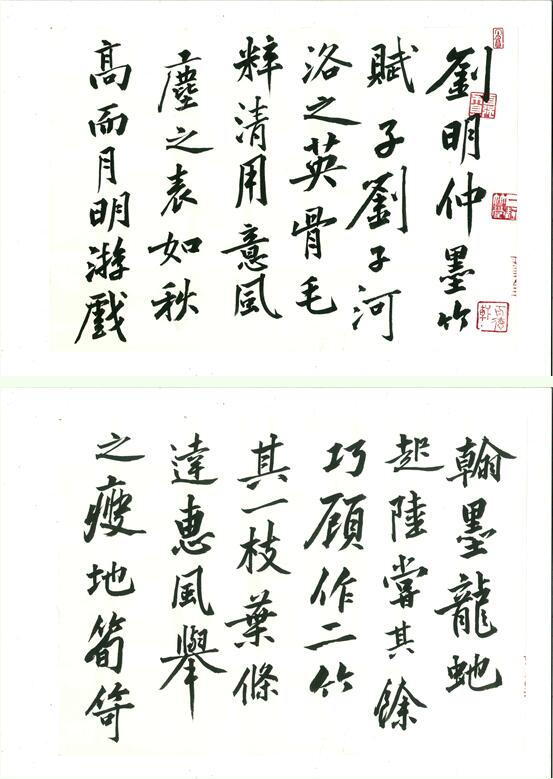 劉明仲墨竹
賦子劉子河
洛之英骨毛
粹清用意風
塵之表如秋
高而月明游戲
翰墨龍虵
起陸嘗其餘
巧顧作二竹
其一枝葉條
達惠風舉
之瘦地筍笴